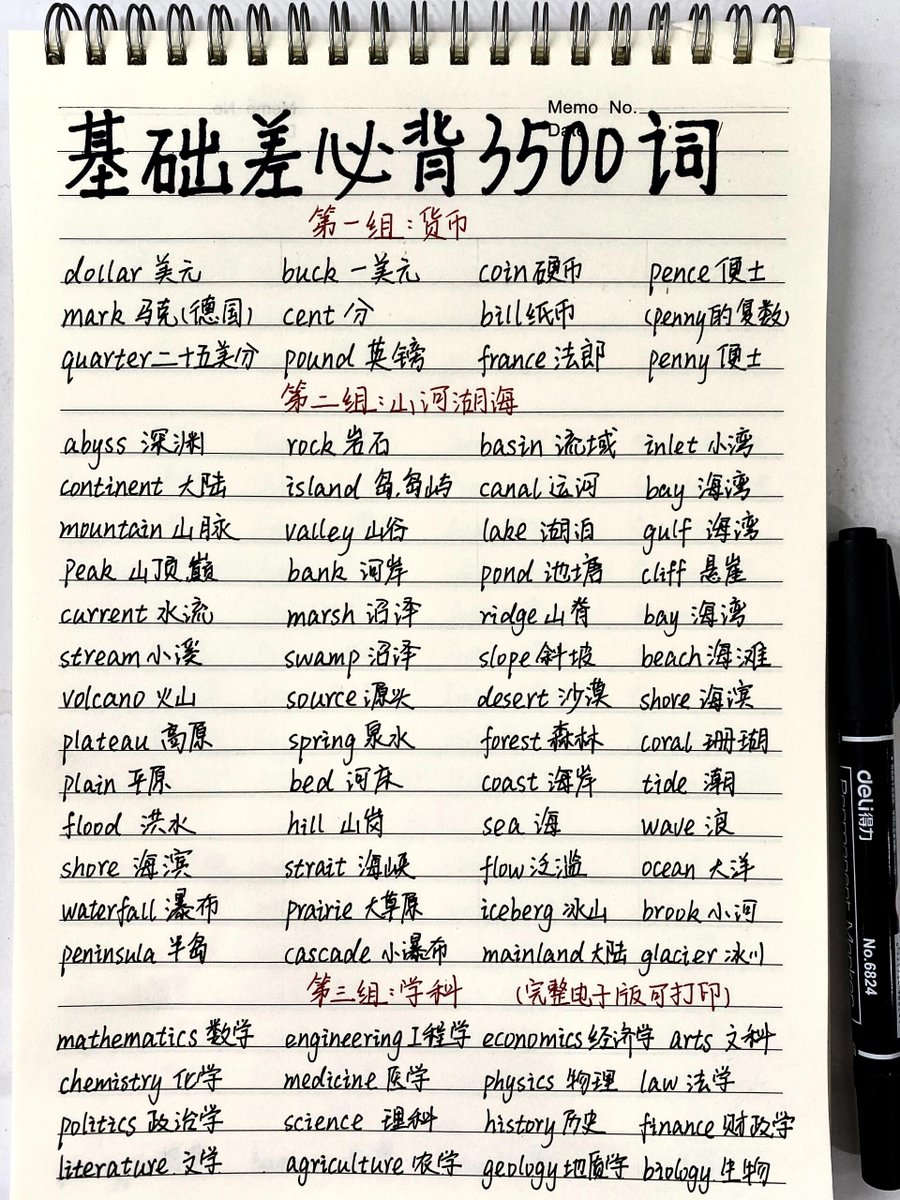 Memo No.
Date /
基础差必背3500词
第一组:货币
dollar 美元 buck 一美元 coin 硬币 pence 便士
mark 马克(德国) cent 分 bill 纸币 (penny的复数)
quarter 二十五美分 pound 英镑 france 法郎 penny 便士
第二组:山河湖海
abyss 深渊 rock 岩石 basin 流域 inlet 小湾
continent 大陆 island 岛,岛屿 canal 运河 bay 海湾
mountain 山脉 valley 山谷 lake 湖泊 gulf 海湾
peak 山顶,巅 bank 河岸 pond 池塘 cliff 悬崖
current 水流 marsh 沼泽 ridge 山脊 bay 海湾
stream 小溪 swamp 沼泽 slope 斜坡 beach 海滩
volcano 火山 source 源头 desert 沙漠 shore 海滨
plateau 高原 spring 泉水 forest 森林 coral 珊瑚
plain 平原 bed 河床 coast 海岸 tide 潮
flood 洪水 hill 山岗 sea 海 wave 浪
shore 海滨 strait 海峡 flow 泛滥 ocean 大洋
waterfall 瀑布 prairie 大草原 iceberg 冰山 brook 小河
peninsula 半岛 cascade 小瀑布 mainland 大陆 glacier 冰川
第三组:学科 (完整电子版可打印)
mathematics 数学 engineering 工程学 economics 经济学 arts 文科
chemistry 化学 medicine 医学 physics 物理 law 法学
politics 政治学 science 理科 history 历史 finance 财政学
literature 文学 agriculture 农学 geology 地质学 biology 生物
deli得力
Permanent Marker
No.6824